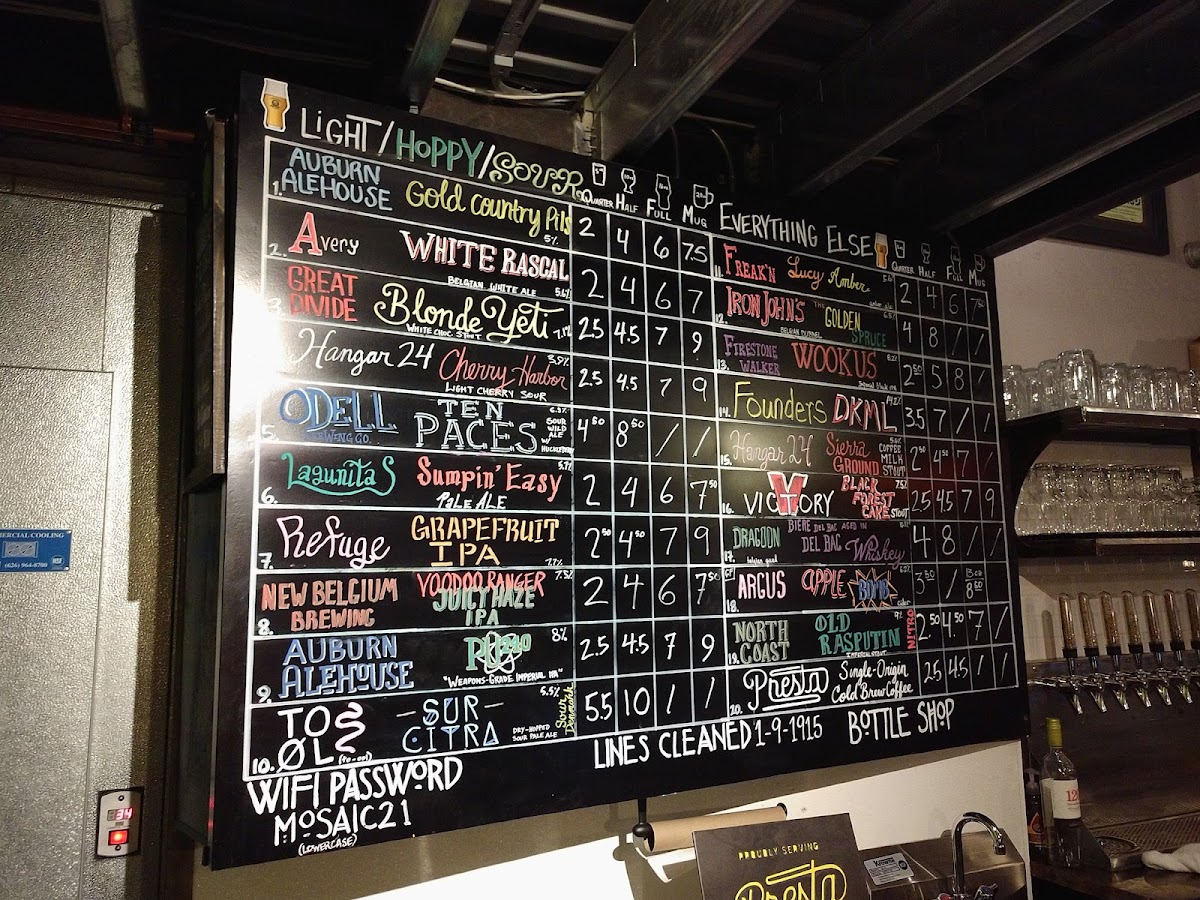 LIGHT/HOPPY/SOUR
QUARTER HALF FULL MUG
1. AUBURN ALEHOUSE Gold Country Pils 5% 2 4 6 7.5
2. Avery WHITE RASCAL BELGIAN WHITE ALE 5.6% 2 4 6 7
3. GREAT DIVIDE Blonde Yeti WHITE CHOC. STOUT 2.5 4.5 7 9
Hangar 24 Cherry Harbor LIGHT CHERRY SOUR 3.9% 2.5 4.5 7 9
5. ODELL BREWING CO. TEN PACES SOUR WILD ALE W/ 4.50 8.50 / /
6. Lagunitas Sumpin' Easy PALE ALE 5.7% 2 4 6 7.50
7. Refuge GRAPEFRUIT IPA 7.7% 2.50 4.50 7 9
8. NEW BELGIUM BREWING VOODOO RANGER JUICY HAZE IPA 7.5% 2 4 6 7.50
9. AUBURN ALEHOUSE PU240 "WEAPONS-GRADE IMPERIAL IPA" 8% 2.5 4.5 7 9
10. TO ØL (to-ool) SUR CITRA DRY-HOPPED SOUR PALE ALE 5.5% Sour Denmark 5.5 10 / /
EVERYTHING ELSE
QUARTER HALF FULL MUG
11. FREAK'N Lucy Amber 2 4 6 7.50
12. IRON JOHN'S THE GOLDEN SPRUCE BELGIAN DUBBEL 4 8 / /
13. FIRESTONE WALKER WOOKUS 2.50 5 8 /
14. Founders DKML 14.2% 3.5 7 / /
15. Hangar 24 Sierra GROUND COFFEE MILK STOUT 2.50 4.50 7 /
16. VICTORY BLACK FOREST CAKE STOUT 7.5% 2.5 4.5 7 9
17. DRAGOON BIERE DEL BAC AGED IN DEL BAC Whiskey 4 8 / /
18. ARGUS APPLE BOMB cider 3.50 / 13oz 8.50
19. NORTH COAST OLD RASPUTIN IMPERIAL STOUT 9% NITRO 2.50 4.50 7 /
20. Presta Single-Origin Cold Brew Coffee 2.5 4.5 / /
LINES CLEANED 1-9-1915 BOTTLE SHOP
WIFI PASSWORD
MOSAIC21
(LOWERCASE)
COMMERCIAL COOLING
(626) 964-8700
34
PROUDLY SERVING
Presta